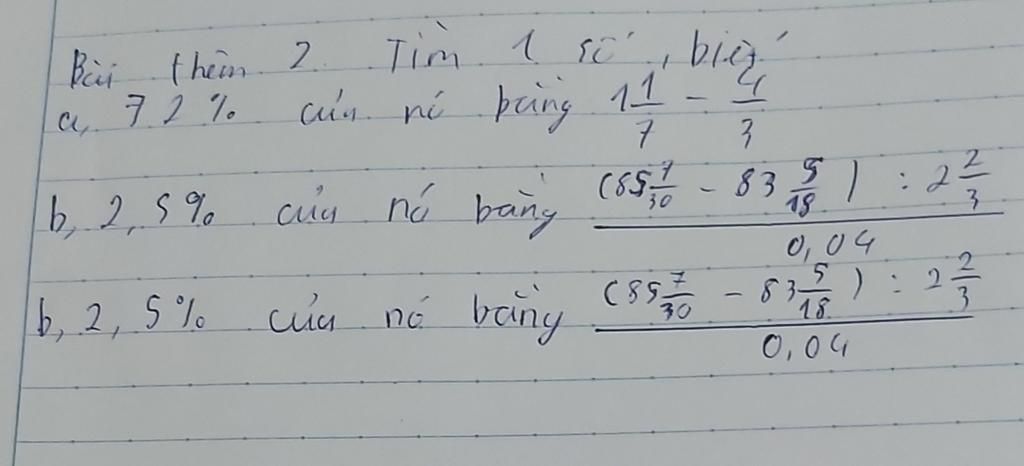 Bài thêm 2. Tìm 1 số, biết
a, 72% của nó bằng 1 1/7 - 4/3
b, 2,5% của nó bằng ((85 7/30 - 83 5/18) : 2 2/3)/0,04
b, 2,5% của nó bằng ((85 7/30 - 83 5/18) : 2 2/3)/0,04